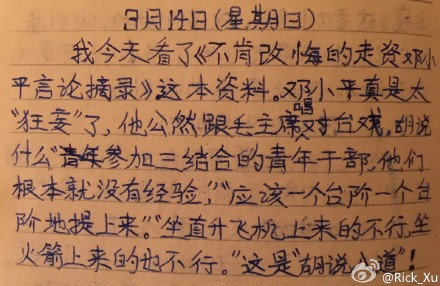 3月14日(星期日)
我今天看了《不肯改悔的走资邓小
平言论摘录》这本资料。邓小平真是太
"狂妄"了,他公然跟毛主席唱对台戏,胡说
什么"青年参加三结合的青年干部,他们
根本就没有经验,""应该一个台阶一个台
阶地提上来。""坐直升飞机上来的不行,坐
火箭上来的也不行。"这是"胡说八道"!
@Rick_Xu